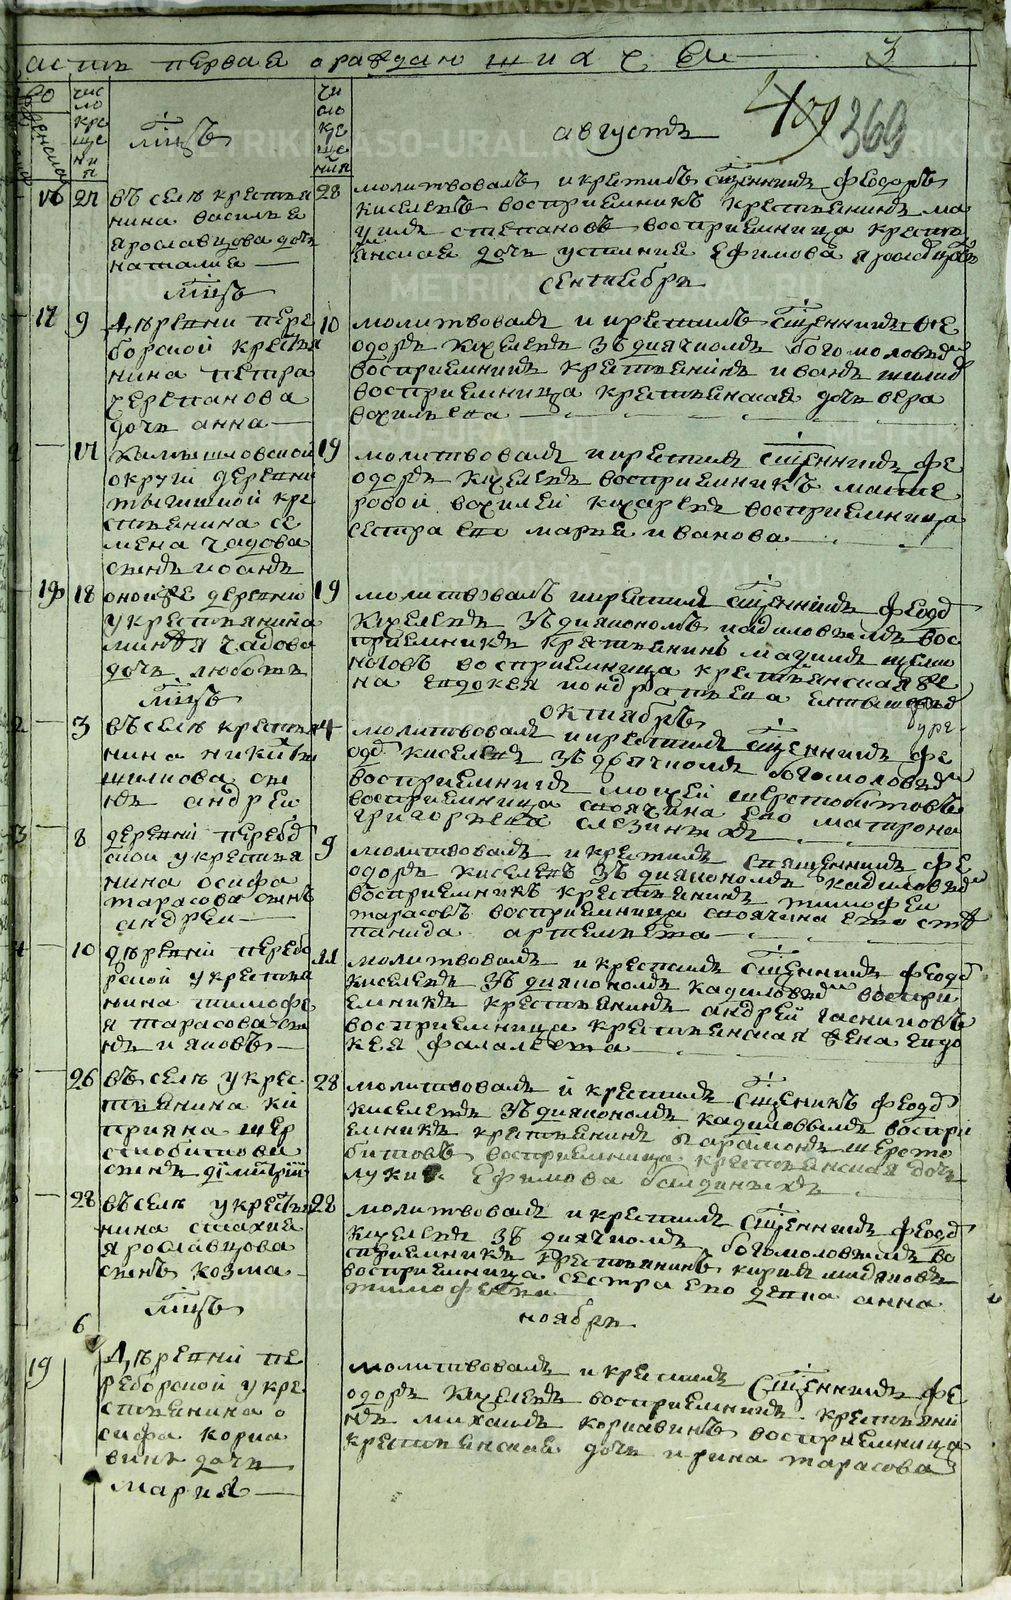 асть первая о раждающихся 3
409 369
число крещения
мѣсяцъ
августъ
16 27 въ селѣ крестья
нина василья
ярославцова дочь
наталия
28 молитвовалъ и крестилъ священникъ феодоръ
киселевъ восприемникъ крестьянинъ ма
степановъ восприемница кресть
янская дочь устиния ефимова
мѣсяцъ
сентябрь
17 9 деревни пере
борской крестья
нина петра
черепанова
дочь анна
10 молитвовалъ и крестилъ священникъ фе
одоръ киселевъ зъ диячкомъ богомоловымъ
восприемникъ крестьянинъ иванъ
восприемница крестьянская дочь вера
17 камышловской
округи деревни
кре
стьянина се
мена чадова
сынъ иоанъ
19 молитвовалъ и крестилъ священникъ фе
одоръ киселевъ восприемникъ
восприемница
сестра ево марья иванова
18 18 оной же деревни
у крестьянина
чадова
дочь любовь
19 молитвовалъ и крестилъ священникъ феод
киселевъ зъ диякономъ кадиловымъ вос
приемникъ крестьянинъ
восприемница крестьянская же
на евдокея кондратьева
мѣсяцъ
октябрь
3 въ селѣ крестья
нина никиты
шилкова сы
нъ андрей
4 молитвовалъ и крестилъ священникъ фе
од киселевъ зъ дьячкомъ богомоловымъ
восприемникъ мокей шерстобитовъ
восприемница своячина ево матрона
григорьева слезиныхъ
8 деревни перебор
ской у крестья
нина осифа
тарасова сынъ
андреи
9 молитвовалъ и крестилъ священникъ фе
одоръ киселевъ зъ диякономъ кадиловымъ
восприемникъ крестьянинъ тимофеи
тарасовъ восприемница своячина ево сте
панида артемьева
10 деревни перебо
рской у крестья
нина тимофе
я тарасова сы
нъ иаковъ
11 молитвовалъ и крестилъ священникъ феод
киселевъ зъ дияконамъ кадиловым воспри
емникъ крестьянинъ андрей
восприемница крестьянская жена евдо
кея фалалеева
26 въ селѣ у крес
тьянина ки
прияна шер
стобитова
сынъ димитрий
28 молитвовалъ и крестилъ священикъ феод
киселевъ зъ дияконамъ кадиловымъ воспри
емникъ крестьянинъ парамонъ шерсто
битовъ восприемница крестьянская дочь
ефимова балдиныхъ
28 въ селѣ у крестья
нина стахия
ярославцова
сынъ козма
28 молитвовалъ и крестилъ священникъ феод
киселевъ зъ диячкомъ богомоловымъ во
сприемникъ крестьянинъ кирил
восприемница сестра ево девка анна
тимофеева
мѣсяцъ
ноябрь
19 6 деревни пе
реборской у кре
стьянина о
сифа корка
винъ дочь
мария
молитвовалъ и крестилъ священникъ фе
одоръ киселевъ восприемникъ крестьяни
нъ михаилъ коркавинъ восприемница
крестьянская дочь ирина тарасова
METRIKI.GASO-URAL.RU